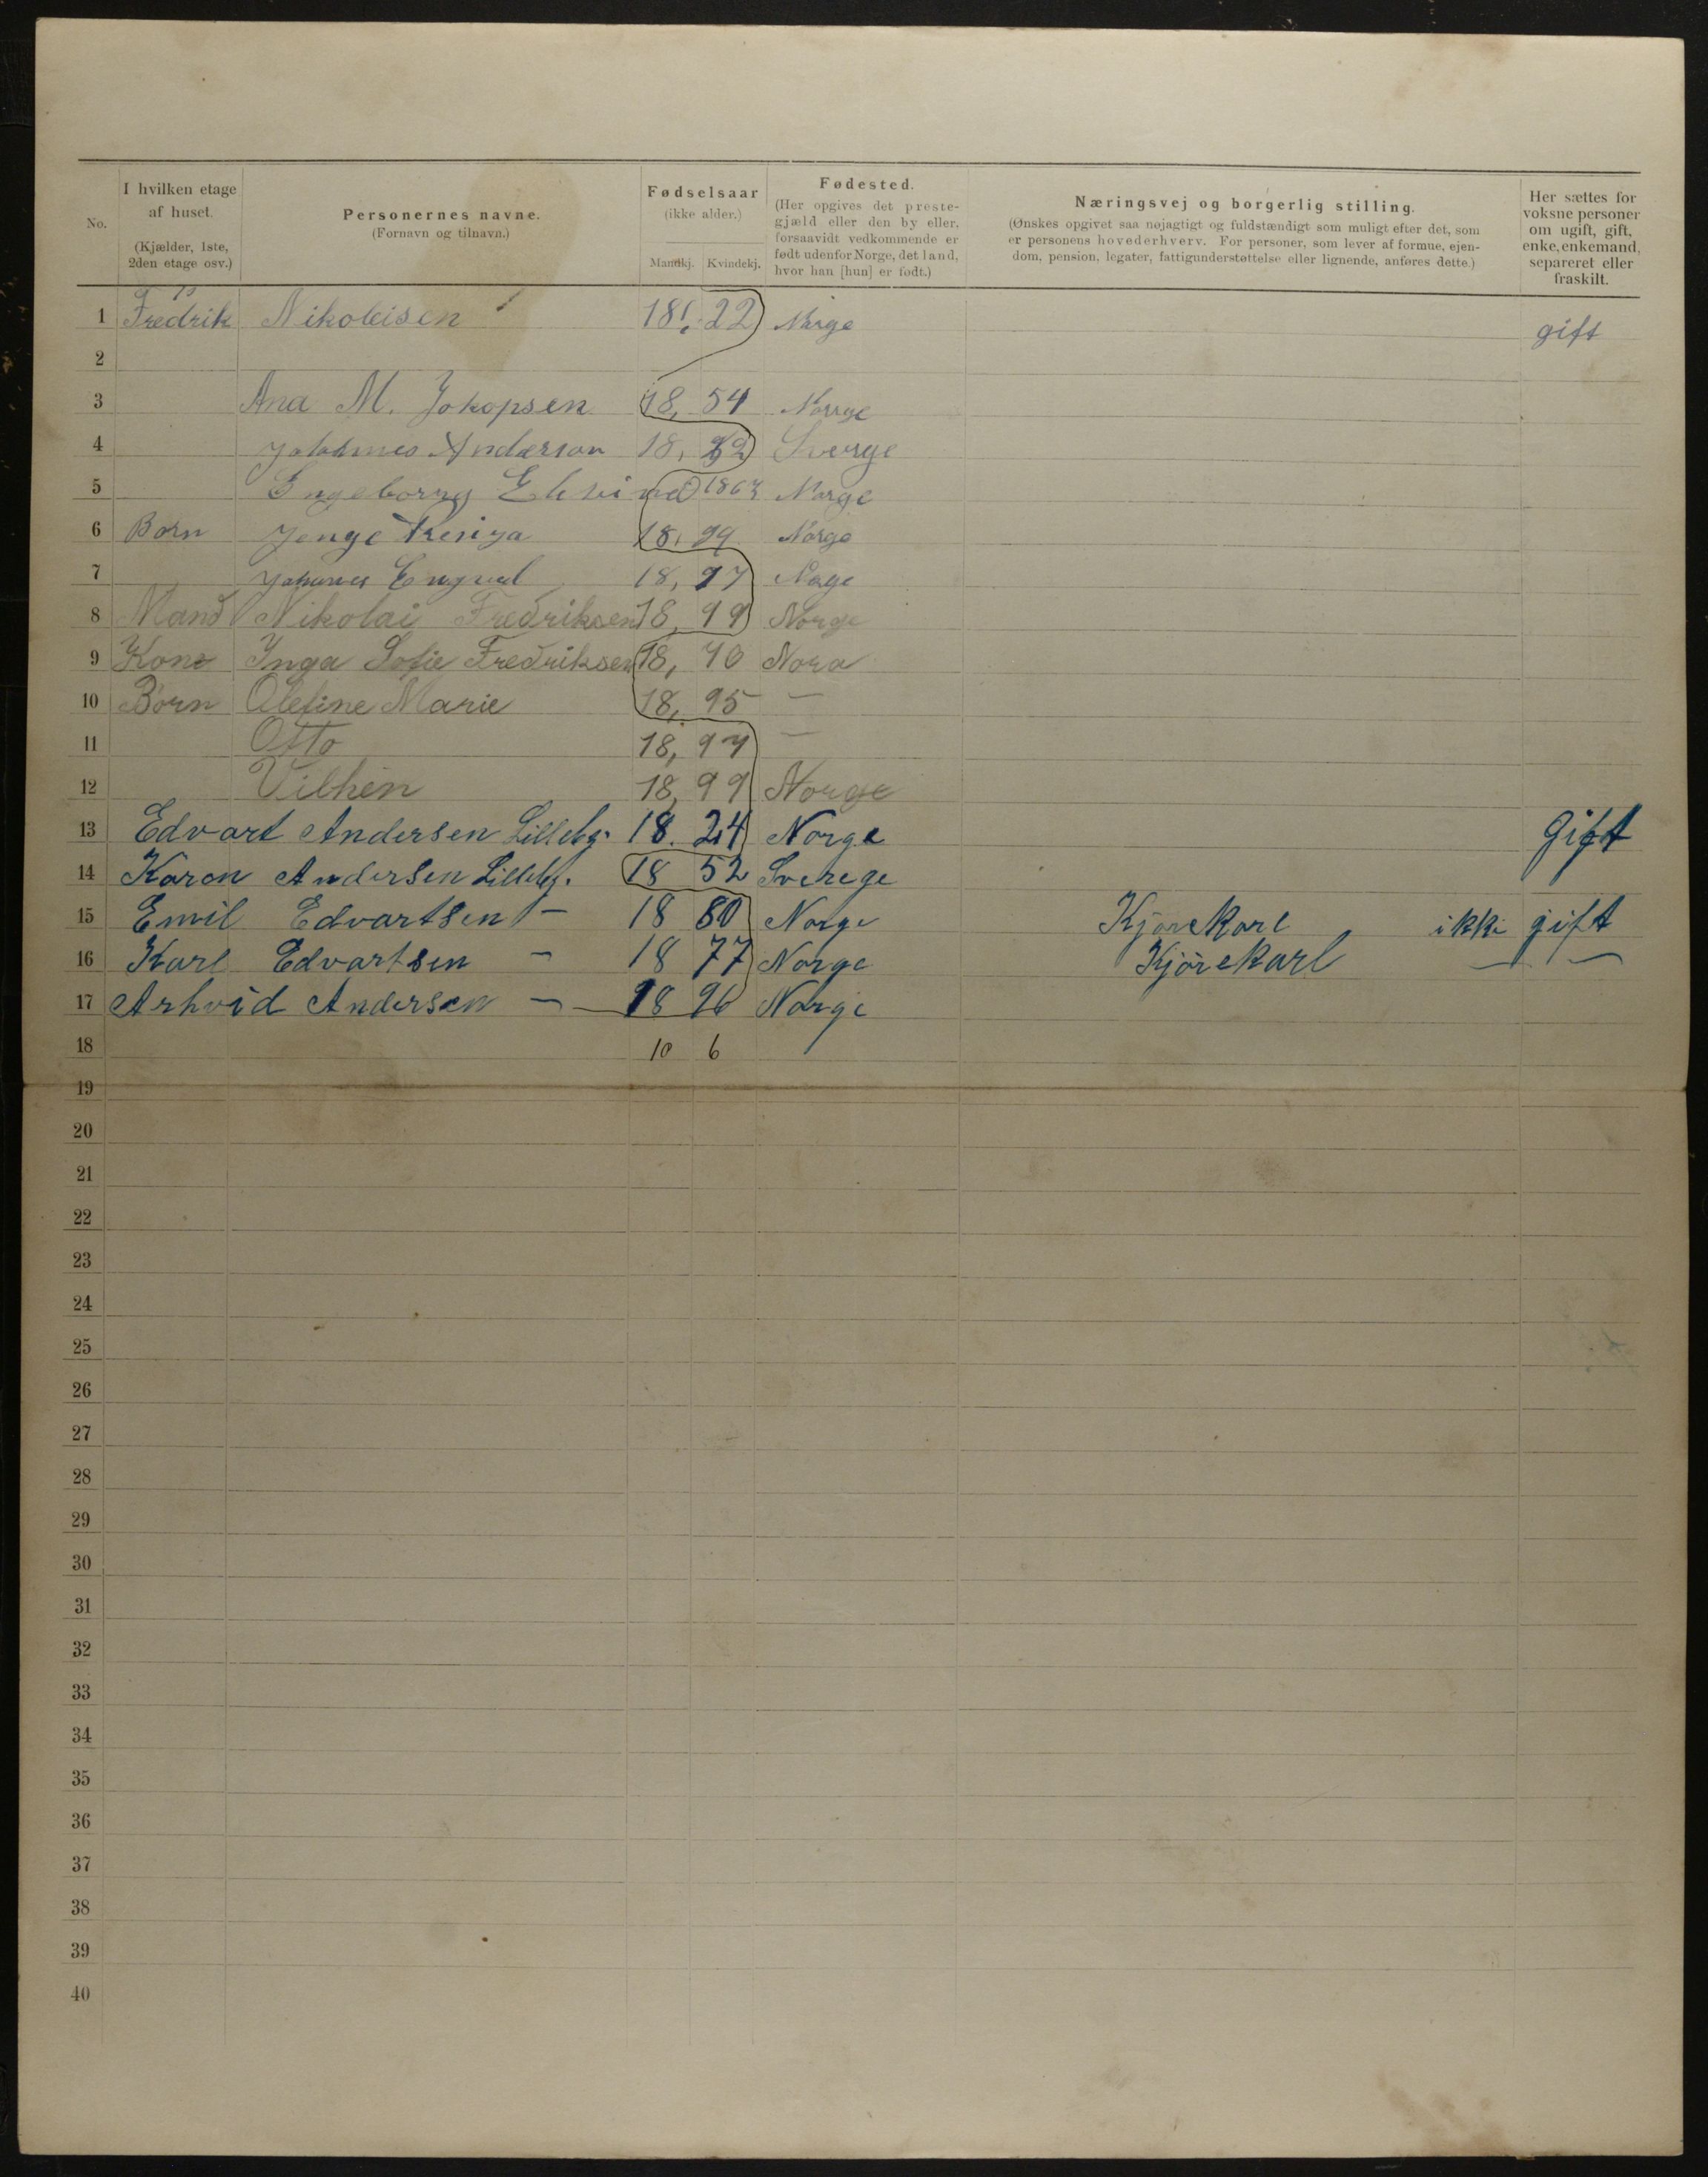 No.
I hvilken etage af huset. (Kjælder, 1ste, 2den etage osv.)
Personernes navne. (Fornavn og tilnavn.)
Fødselsaar (ikke alder.) Mandkj. Kvindekj.
Fødested. (Her opgives det prestegjæld eller den by eller, forsaavidt vedkommende er født udenfor Norge, det land, hvor han [hun] er født.)
Næringsvej og borgerlig stilling. (Ønskes opgivet saa nøjagtigt og fuldstændigt som muligt efter det, som er personens hovederhverv. For personer, som lever af formue, ejendom, pension, legater, fattigunderstøttelse eller lignende, anføres dette.)
Her sættes for voksne personer om ugift, gift, enke, enkemand, separeret eller fraskilt.
1 Fredrik Nikoleisen 18 22 Norge gift
2
3 Ana M. Jokopsen 18, 54 Norrge
4 Johannes Anderson 18, 2 Sverge
5 Engeborrg 1867 Norge
6 Børn Jenge 18, 99 Norge
7 Johanes Engval 18, 97 Noge
8 Mand Nikolai Fredriksen 18, 99 Norge
9 Kone Inga Sofie Fredriksen 18, 70 Nora
10 Børn Olefine Marie 18, 95 —
11 Otto 18, 97 —
12 Vilhen 18, 99 Norge
13 Edvart Andersen Lillebg. 18. 24 Norge Gift
14 Karen Andersen Lillebg. 18 52 Sverege
15 Emil Edvartsen — 18 80 Norge Kjørekarl ikke gift
16 Karl Edvartsen — 18 77 Norge Kjørekarl — —
17 Arhvid Andersen — 18 96 Norge
18 10 6
19
20
21
22
23
24
25
26
27
28
29
30
31
32
33
34
35
36
37
38
39
40